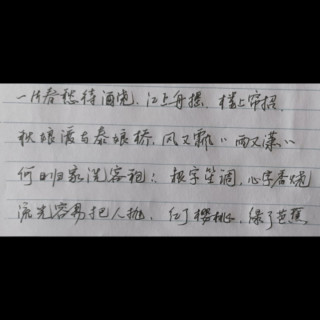 一片春愁待酒浇. 江上舟摇. 楼上帘招.
秋娘渡与泰娘桥. 风又飘〃 雨又潇〃
何日归家洗客袍: 银字笙调, 心字香烧
流光容易把人抛. 红了樱桃. 绿了芭蕉.